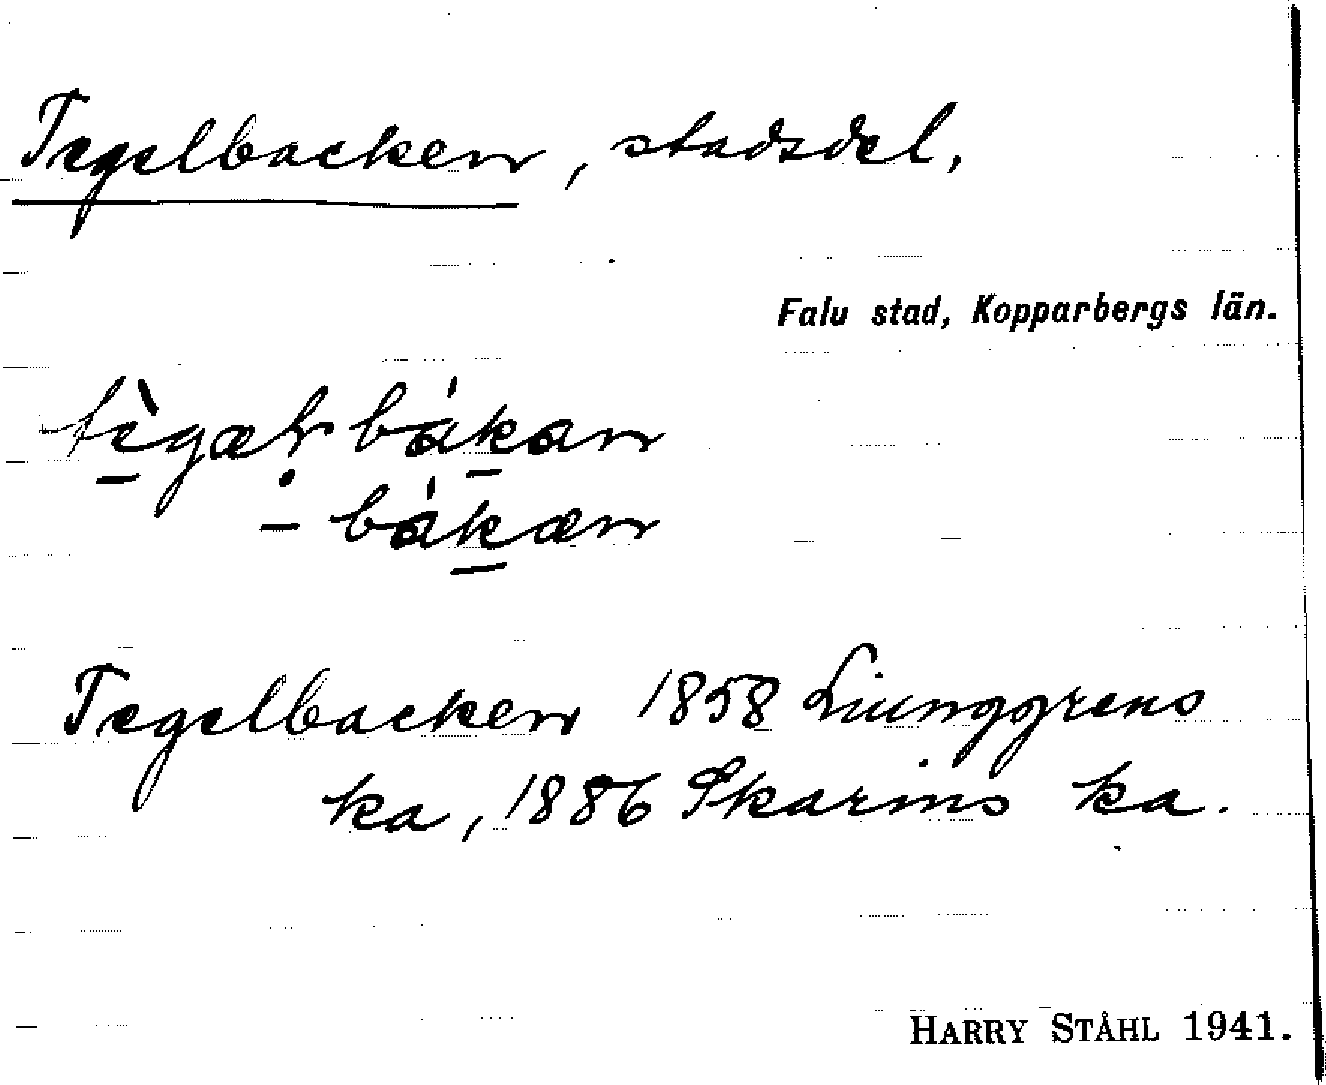 Tegelbacken, stadsdel,
Falu stad, Kopparbergs län.
tègæl bákan
– bákæn
Tegelbacken 1858 Liunggrens
ka, 1886 Skarins ka.
HARRY STÅHL 1941.